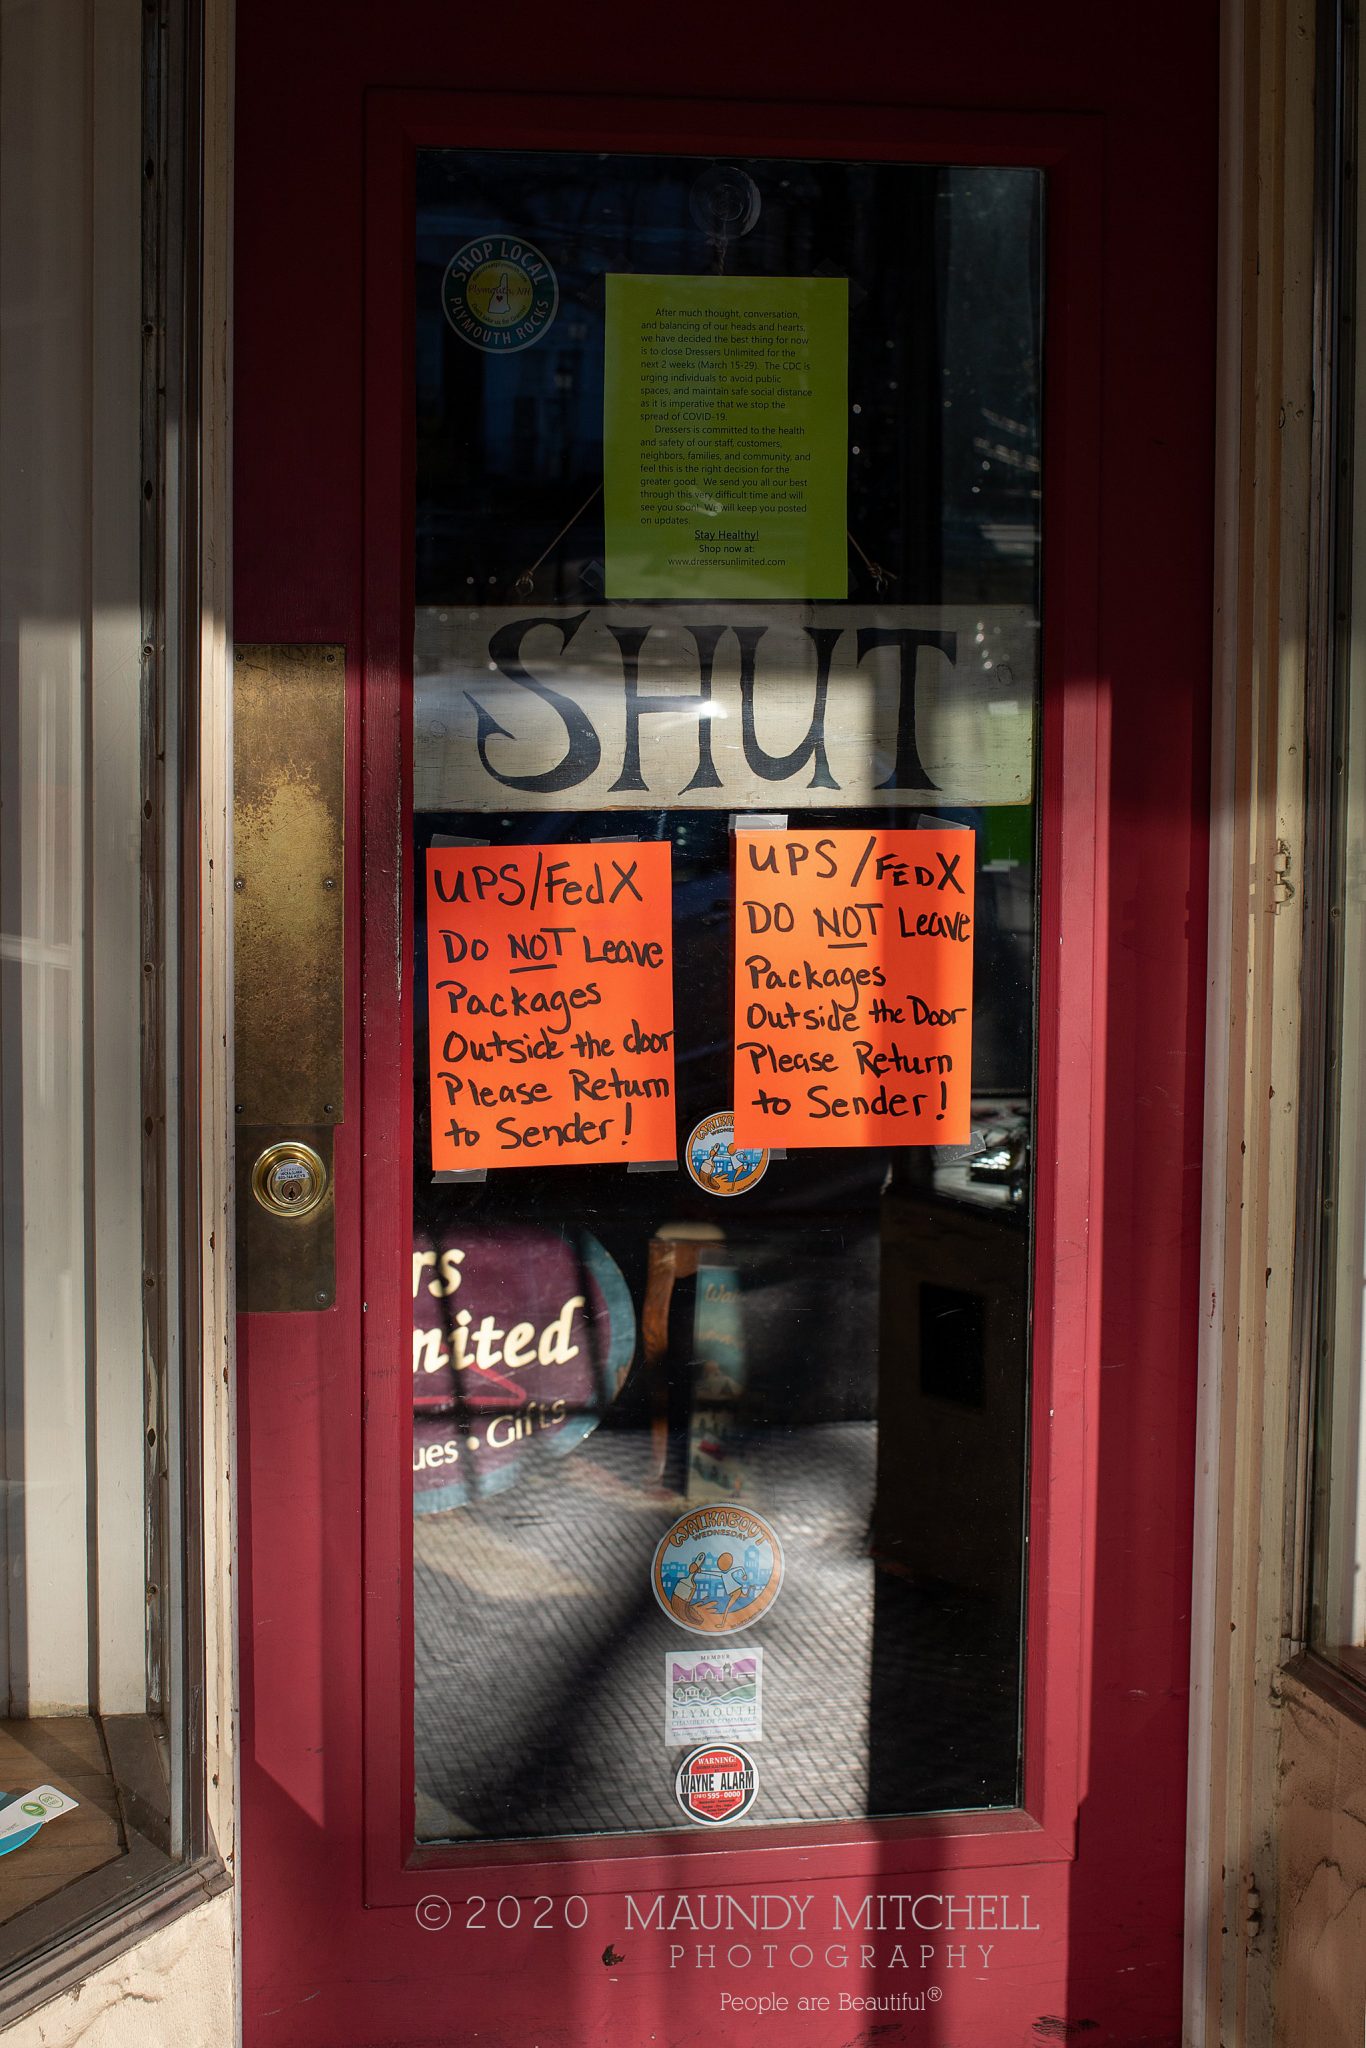 SHOP LOCAL
Plymouth, NH
PLYMOUTH ROCKS
After much thought, conversation,
and balancing of our heads and hearts,
we have decided the best thing for now
is to close Dressers Unlimited for the
next 2 weeks (March 15-29). The CDC is
urging individuals to avoid public
spaces, and maintain safe social distance
as it is imperative that we stop the
spread of COVID-19.
Dressers is committed to the health
and safety of our staff, customers,
neighbors, families, and community, and
feel this is the right decision for the
greater good. We send you all our best
through this very difficult time and will
see you soon! We will keep you posted
on updates.
Stay Healthy!
Shop now at:
www.dressersunlimited.com
SHUT
UPS/FedX
Do NOT Leave
Packages
Outside the door
Please Return
to Sender!
UPS/FEDX
DO NOT Leave
Packages
Outside the Door
Please Return
to Sender!
WALKABOUT
WEDNESDAY
rs
mited
ues • Gifts
WALKABOUT
WEDNESDAY
MEMBER
PLYMOUTH
CHAMBER OF COMMERCE
WARNING!
WAYNE ALARM
595-0000
©2020 MAUNDY MITCHELL
PHOTOGRAPHY
People are Beautiful®